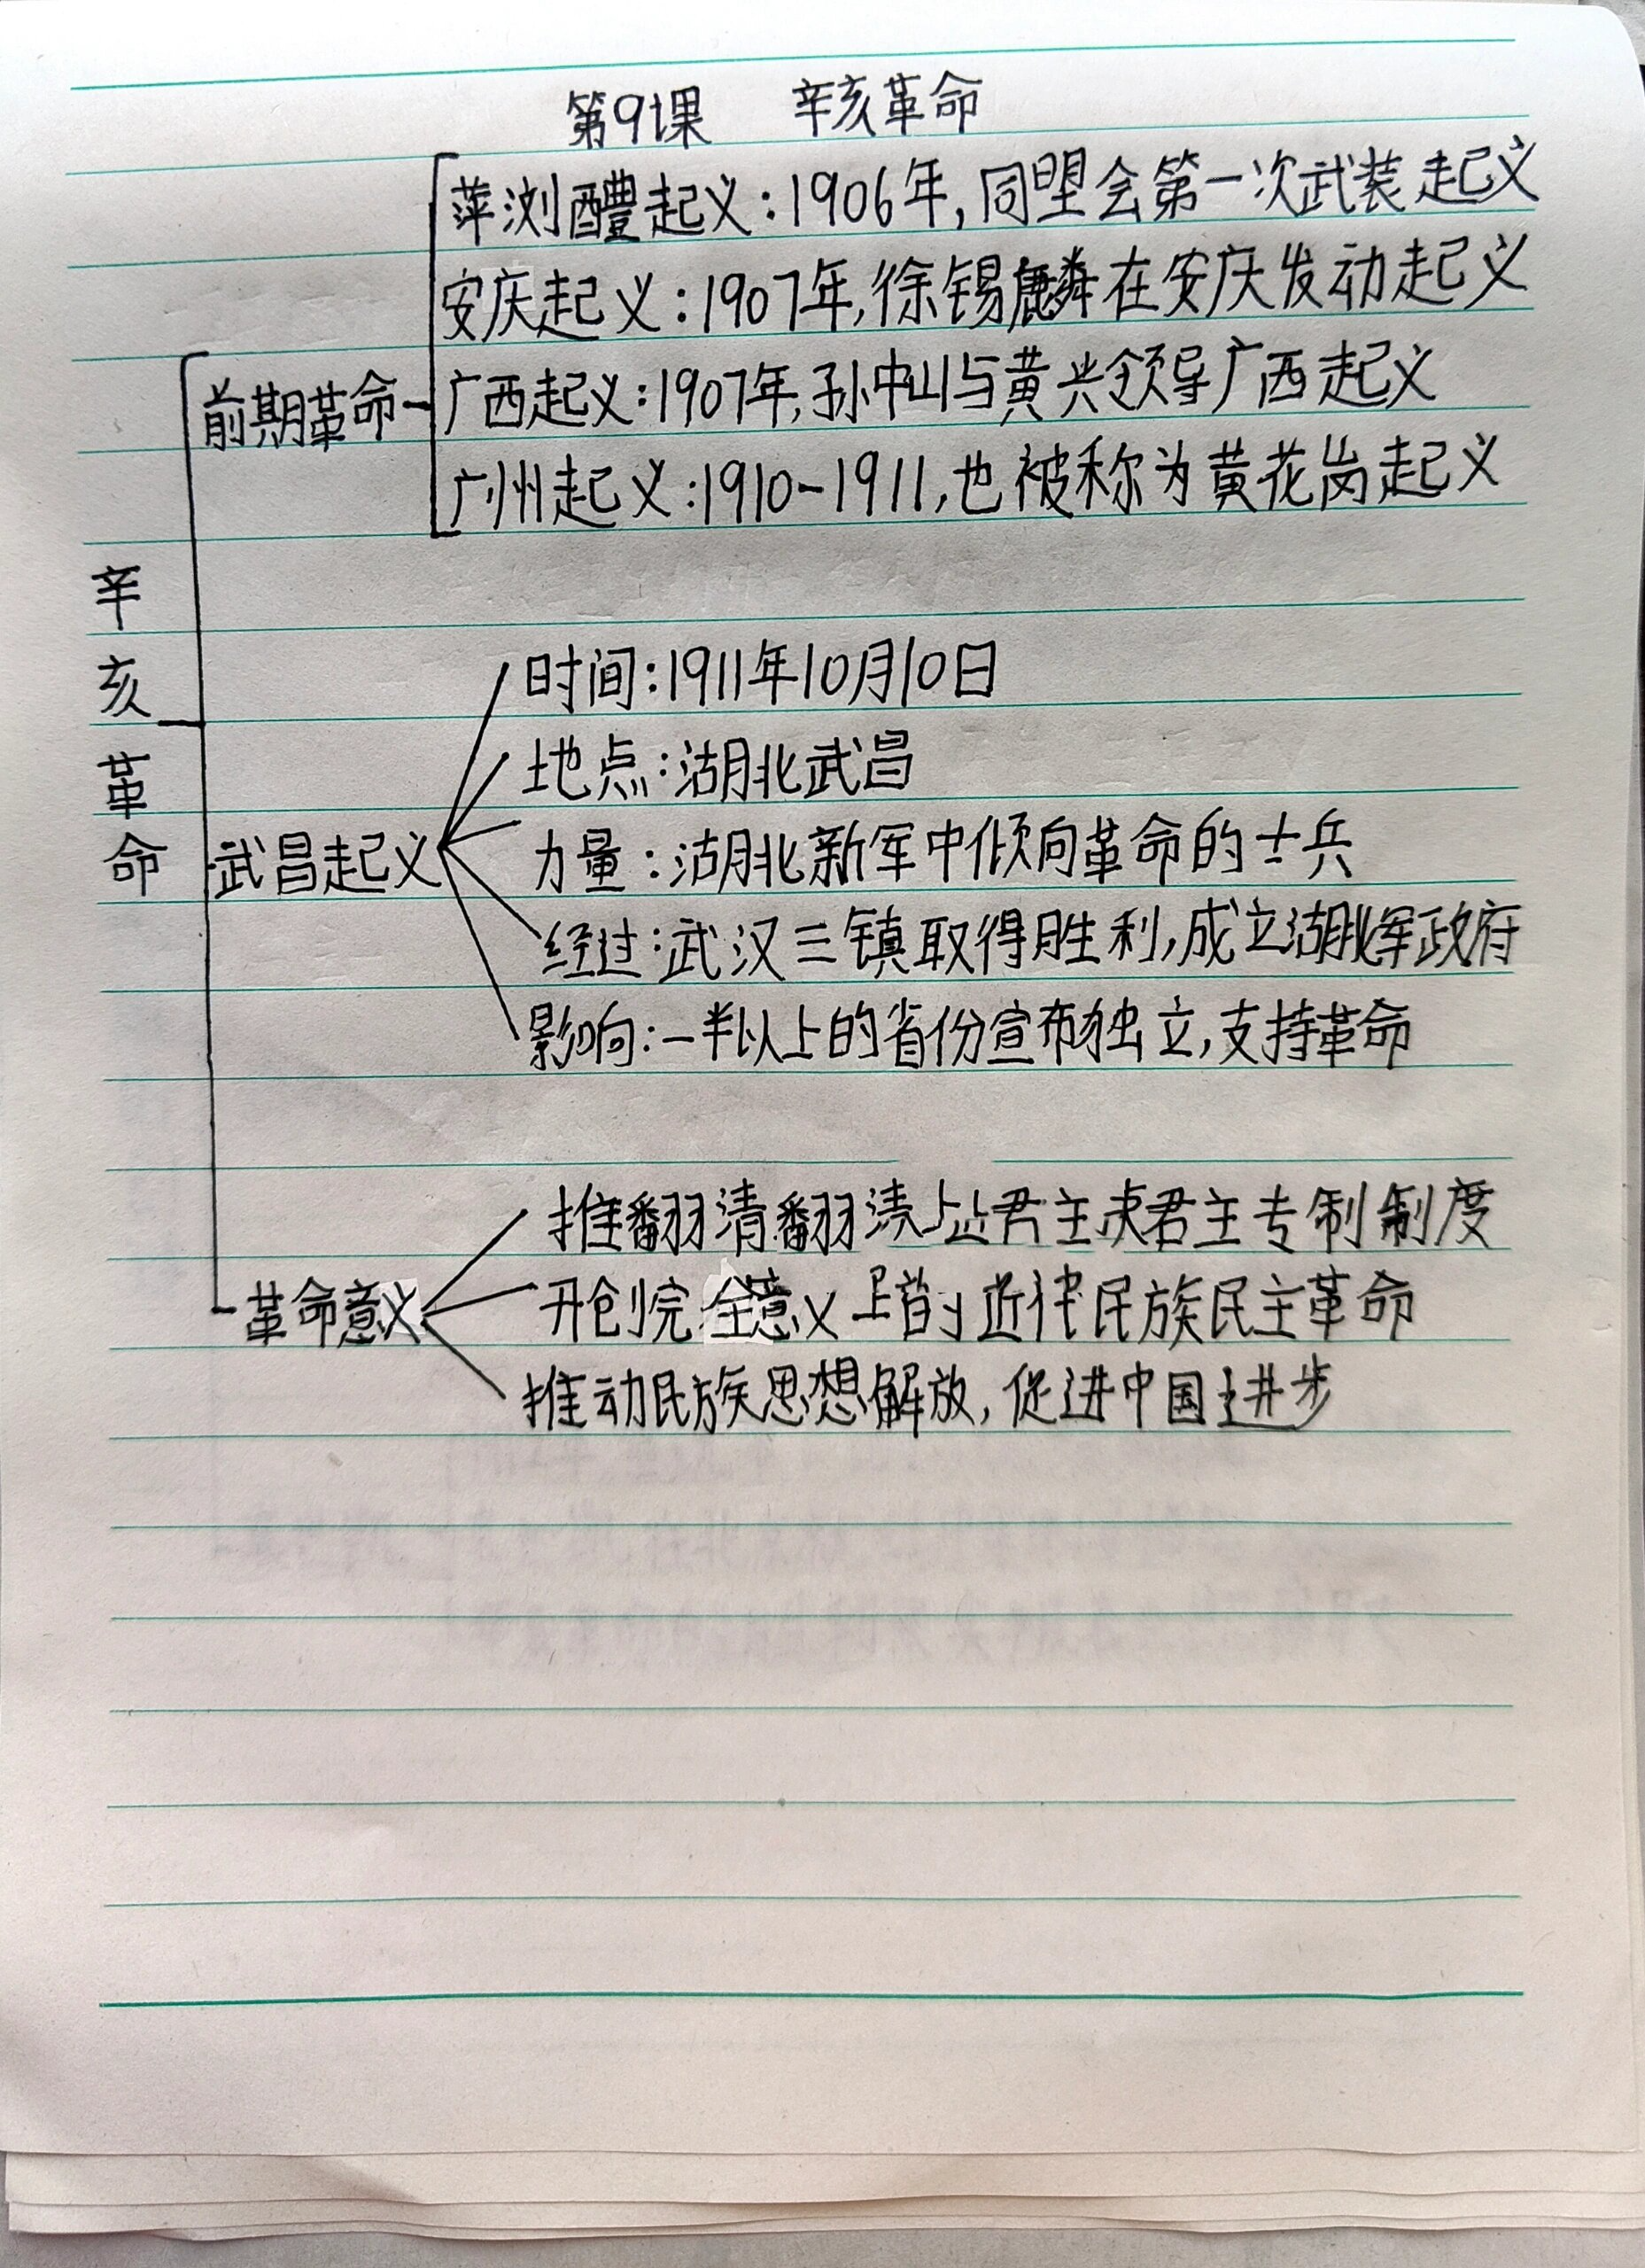 第9课 辛亥革命
萍浏醴起义:1906年,同盟会第一次武装起义
安庆起义:1907年,徐锡麟在安庆发动起义
前期革命
广西起义:1907年,孙中山与黄兴领导广西起义
广州起义:1910-1911,也被称为黄花岗起义
辛亥革命
时间:1911年10月10日
地点:湖北武昌
武昌起义
力量:湖北新军中倾向革命的士兵
经过:武汉三镇取得胜利,成立湖北军政府
影响:一半以上的省份宣布独立,支持革命
推翻清翻清君主君主专制制度
革命意义
开创完全意义上的近代民族民主革命
推动民族思想解放,促进中国进步